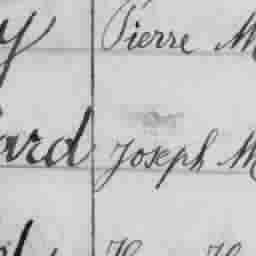 y Pierre M
ard Joseph M